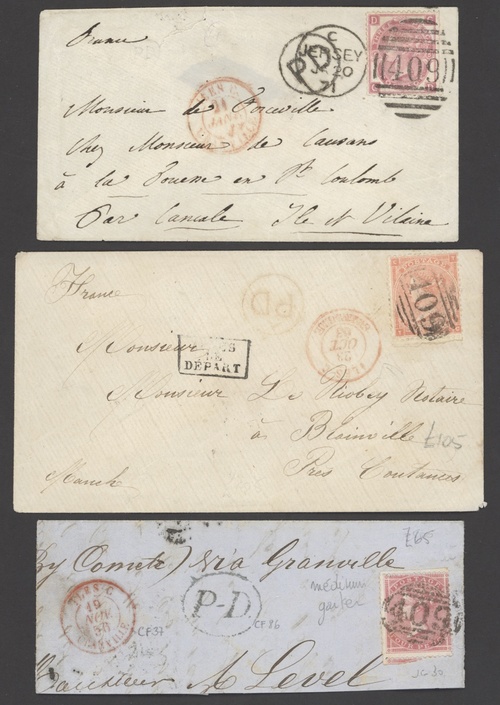 France
C
JERSEY
JA 20
71
PD
409
D
Monsieur de Ponceville
Chez Monsieur de Caurans
à la Fouesse en St Coulomb
Par Cancale Ile et Vilaine
France
PD
409
OCT
DEPART
Monsieur
Monsieur Le Riobey Notaire
à Blainville
£105
Près Coutances
Manche
£65
(By Comete) via Granville
medium
garter
P-D
409
NOV
CF37
CF86
A Level
JG30